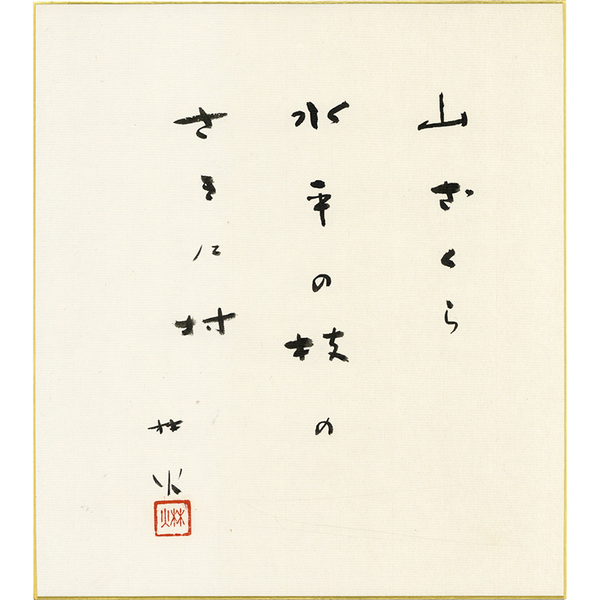 山ざくら
水平の枝の
さきに村
林火
林火